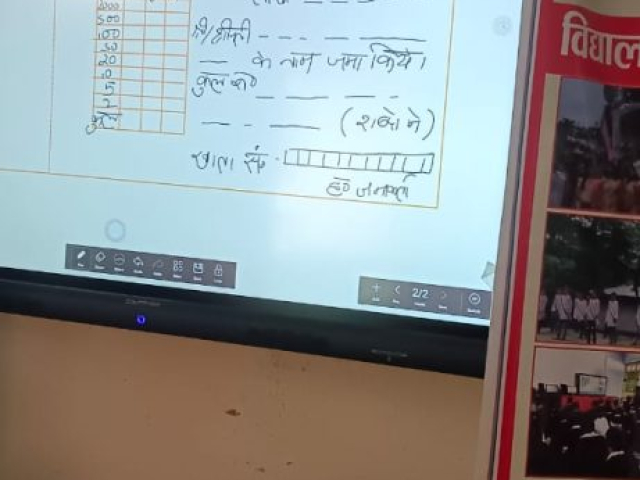 2000
500
श्री/श्रीमती
100
50
के नाम जमा किये।
20
10
कुल रु०
5
2
(शब्दो मे)
कुल
खाता सं०
ह० जमाकर्ता
2/2
विद्याल